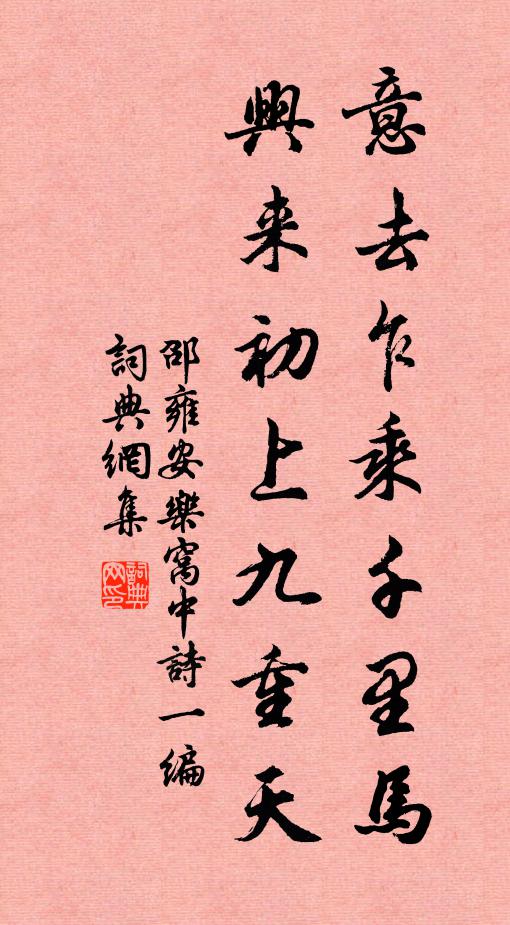 意去乍乘千里馬
興来初上九重天
邵雍安樂窩中詩一编
詞典網集
詞典网印